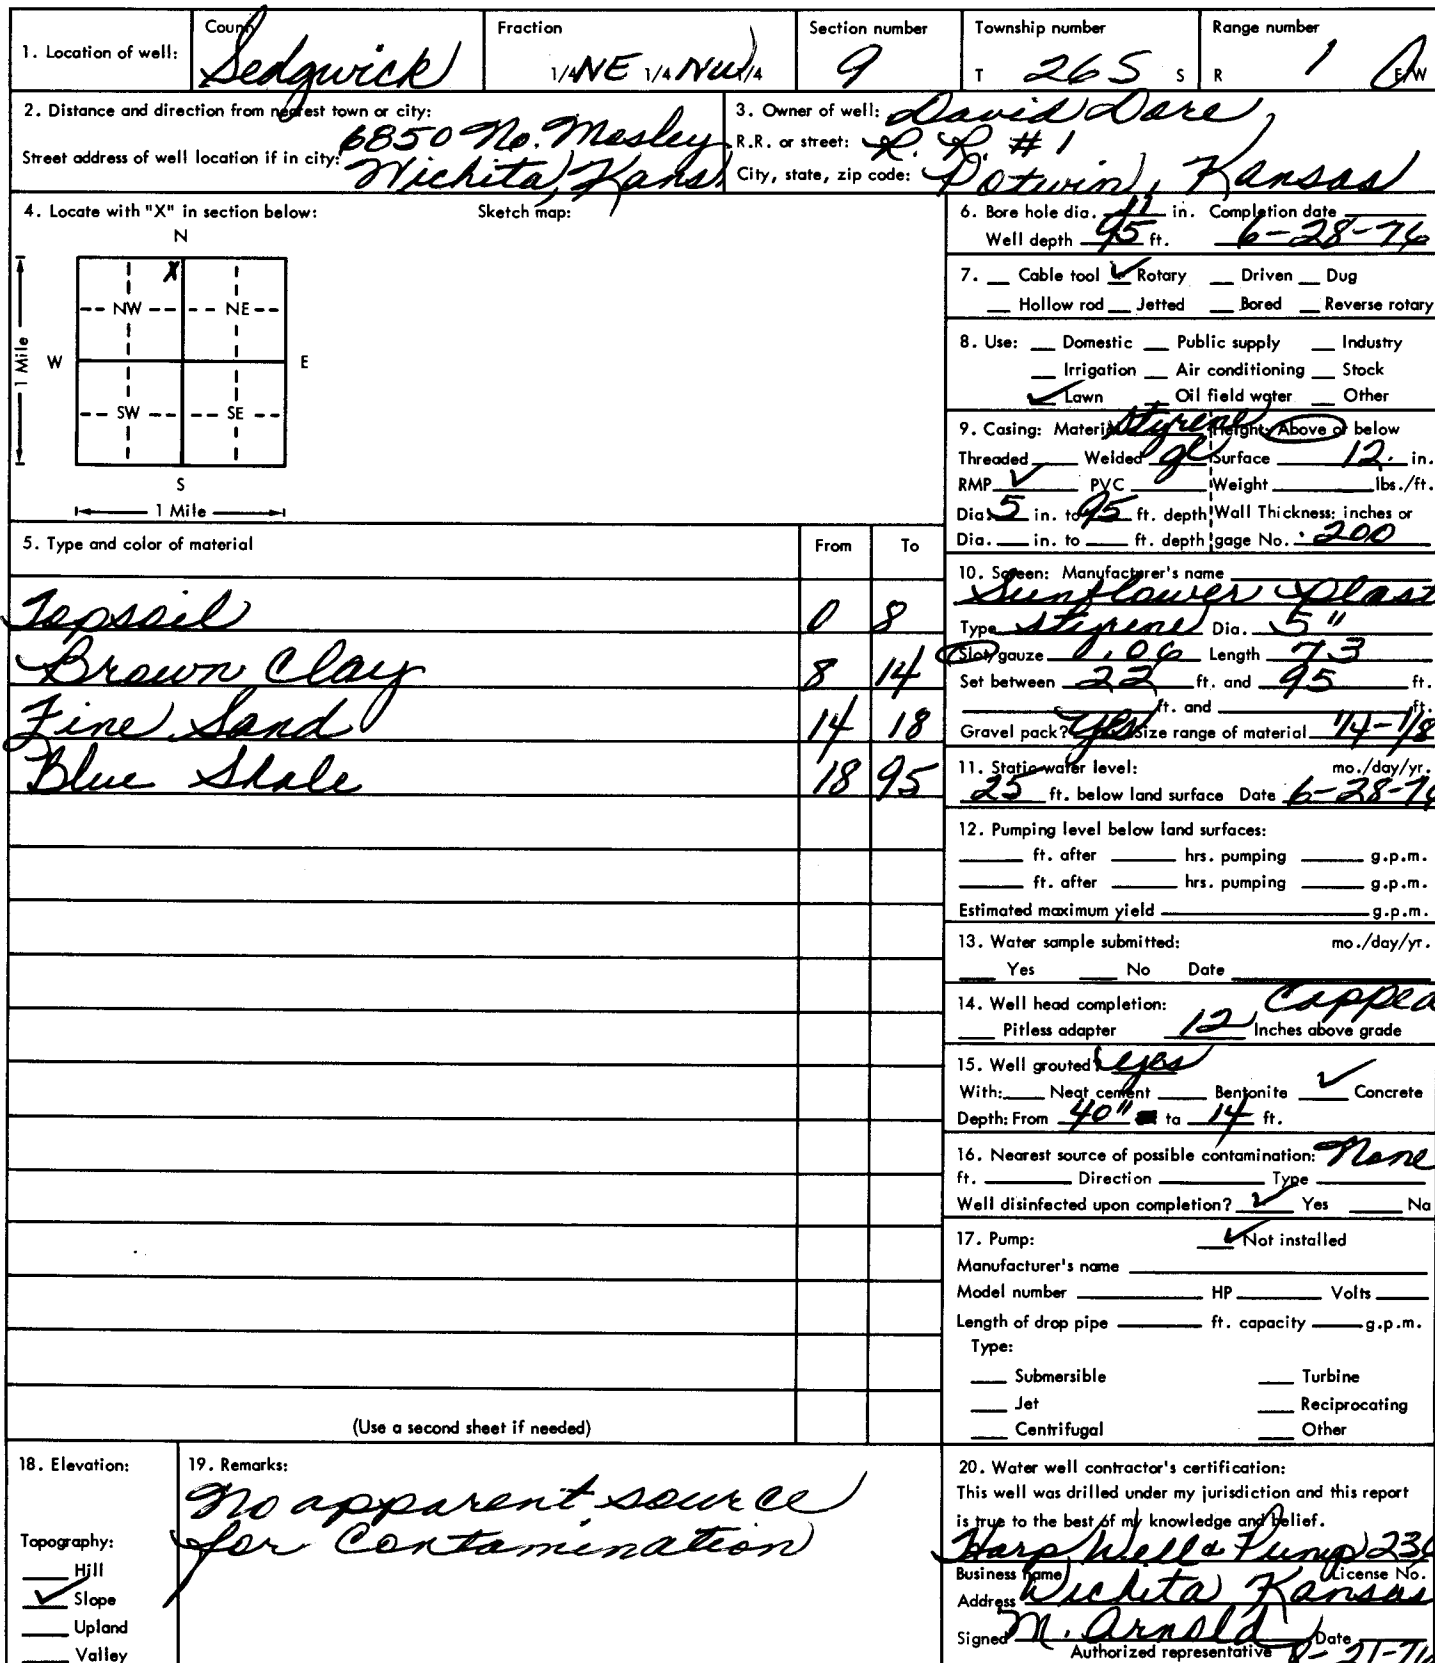 1. Location of well: County Sedgwick Fraction 1/4 NE 1/4 NW 1/4 Section number 9 Township number T 26S S Range number R 1 E/W
2. Distance and direction from nearest town or city: 6850 No. Mosley
Street address of well location if in city: Wichita, Kans
3. Owner of well: David Dare,
R.R. or street: R. R. #1
City, state, zip code: Potwin, Kansas
4. Locate with "X" in section below: Sketch map:
N
X
NW NE
W E
1 Mile
SW SE
S
1 Mile
5. Type and color of material From To
Topsoil 0 8
Brown Clay 8 14
Fine Sand 14 18
Blue Shale 18 95
(Use a second sheet if needed)
6. Bore hole dia. 11 in. Completion date
Well depth 95 ft. 6-28-76
7. Cable tool ✓ Rotary Driven Dug
Hollow rod Jetted Bored Reverse rotary
8. Use: Domestic Public supply Industry
Irrigation Air conditioning Stock
✓ Lawn Oil field water Other
9. Casing: Material Styrene Height: Above or below
Threaded Welded gl Surface 12. in.
RMP ✓ PVC Weight lbs./ft.
Dia. 5 in. to 95 ft. depth Wall Thickness: inches or
Dia. in. to ft. depth gage No. .200
10. Screen: Manufacturer's name
Sunflower Plast
Type Styrene Dia. 5"
Slot/gauze .06 Length 73
Set between 22 ft. and 95 ft.
ft. and ft.
Gravel pack? Yes Size range of material 1/4-1/8
11. Static water level: mo./day/yr.
25 ft. below land surface Date 6-28-76
12. Pumping level below land surfaces:
ft. after hrs. pumping g.p.m.
ft. after hrs. pumping g.p.m.
Estimated maximum yield g.p.m.
13. Water sample submitted: mo./day/yr.
Yes No Date
14. Well head completion: Capped
Pitless adapter 12 Inches above grade
15. Well grouted? yes
With: Neat cement Bentonite ✓ Concrete
Depth: From 40" to 14 ft.
16. Nearest source of possible contamination: None
ft. Direction Type
Well disinfected upon completion? ✓ Yes No
17. Pump: ✓ Not installed
Manufacturer's name
Model number HP Volts
Length of drop pipe ft. capacity g.p.m.
Type:
Submersible Turbine
Jet Reciprocating
Centrifugal Other
18. Elevation:
Topography:
Hill
✓ Slope
Upland
Valley
19. Remarks:
No apparent source
for Contamination
20. Water well contractor's certification:
This well was drilled under my jurisdiction and this report
is true to the best of my knowledge and belief.
Harp Well & Pump 236
Business name License No.
Address Wichita Kansas
Signed M. Arnold Date
Authorized representative